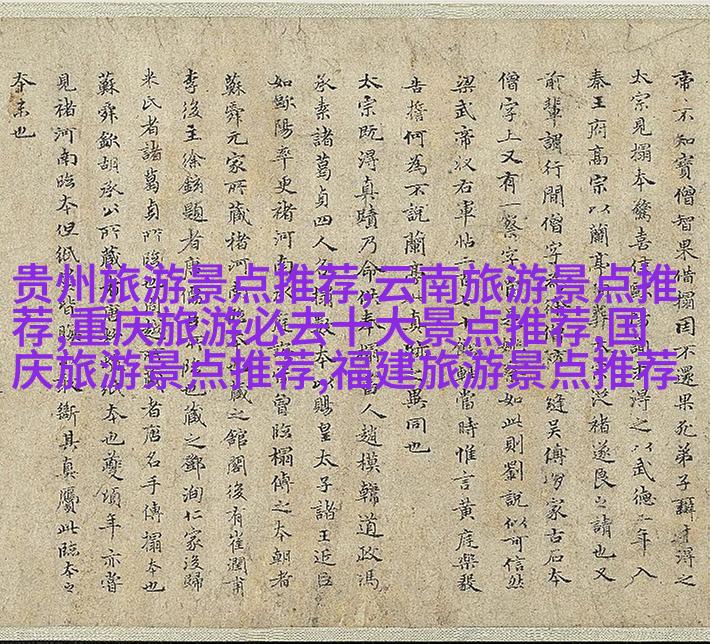 帝不知寶僧智果借搨因不還果死弟子辯才得之
太宗見搨本驚喜使求得之以武德二年入
秦王府高宗以蘭亭葬從褚遂良之請也又
前輩謂行間僧字縫吳傅朋家古石本
僧字上又有一察字如此則劉説似可信然
梁武帝収右軍帖二百七十當時惟言黄庭樂毅
告誓何為不說蘭亭真異同也
太宗既得真蹟乃命供奉搨書人趙模韓道政馮
承素諸葛貞四人各搨數本以賜皇太子諸王近臣
如歐陽率更褚河南庭曾臨搨傳之本朝者
蘇舜元家所藏褚河南藏之館閣後有崔潤甫
李後主徐鉉題者唐也藏之鄧洵仁家後歸
米氏者諸葛貞所臨也者唐名手傳搨本也
蘇舜欽胡承公所藏者唐紙本也夔頃年亦嘗
見褚河南臨本但紙皆斷其真贗此臨本之
夲末也
贵州旅游景点推荐,云南旅游景点推
荐,重庆旅游必去十大景点推荐,国
庆旅游景点推荐,福建旅游景点推荐